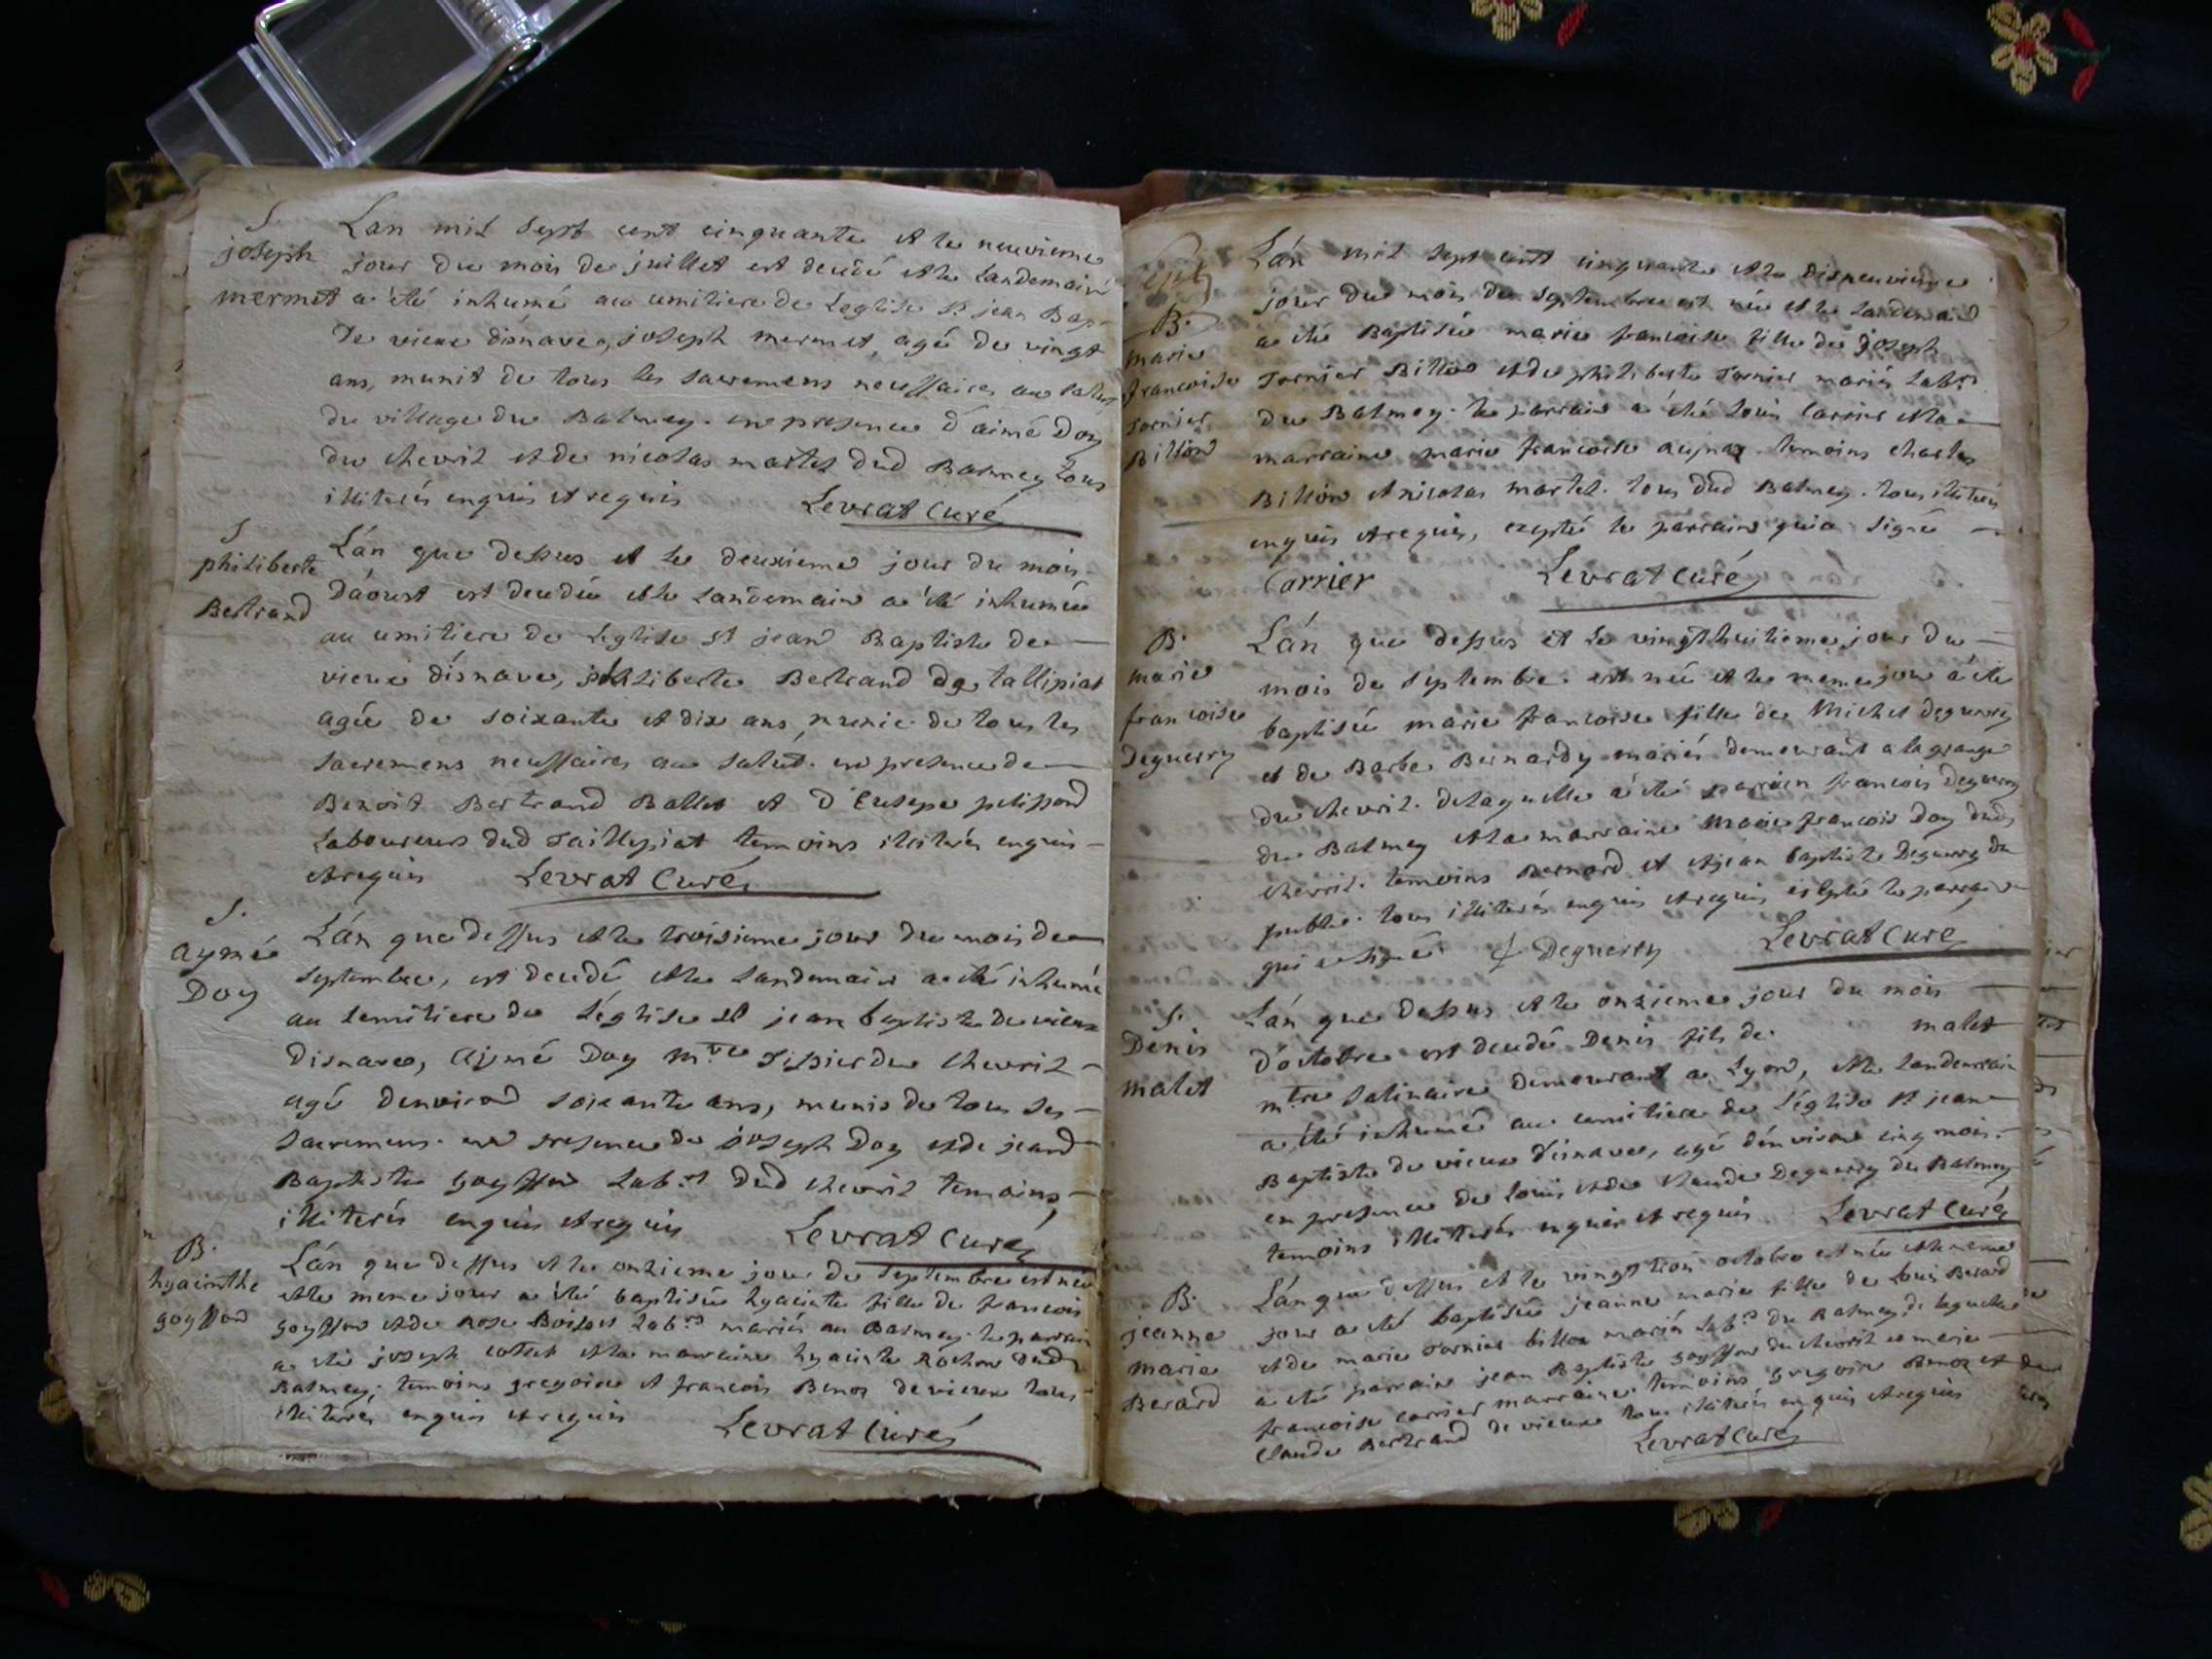 S.
joseph
mermet
Lan mil sept cent cinquante et le neuvieme
jour du mois de juillet est decedé et le landemain
a été inhumé au cimitiere de Leglise St jean Bap-
De vieux disnave, joseph mermet, agé de vingt
ans, munit de tous les sacremens necessaires au salut
du village du Balmey. en presence d'aimé Doy
du chevril et de nicolas martel dud Balmey tous
illiterés enquis et requis Levrat Curé
S
philiberte
Bertrand
Lán que dessus et le deuxieme jour du mois
Dáoust est decedée et le landemain a été inhumée
au cimitiere de Leglise st jean Baptiste de
vieux disnave, philiberte Bertrand de tallipiat
agée de soixante et dix ans, munie de tous les
sacremens necessaires au salut. en presence de
Benoit Bertrand Ballet et d'Eusepe pelissond
Laboureurs dud Taillipiat temoins illiterés enquis
et requis Levrat Curé
S.
aymé
Doy
Lán que dessus et le troisieme jour du mois de
septembre, est decedé et le landemain a été inhumé
au semitiere de Léglise st jean baptiste de vieux
disnave, Aymé Doy m.re Tissier du chevril
agé denviron soixante ans, munis de tous ses
sacremens. en presence de joseph Doy et de jean
Baptiste goyffon lab.rs dud chevril temoins
illiterés enquis et requis Levrat Curé
B.
hyacinthe
goyffon
Lán que dessus et le onzieme jour de septembre est née
et le meme jour a été baptisée hyacinte fille de francois
goyffon et de Rose Lab.rs mariés au Balmey. le parrain
a été joseph et la marraine hyacinte Rochon dud
Balmey; temoins gregoire et francois Benoz de vieux tous
illiterés enquis et requis
Levrat Curé
B.
marie
francoise
Tornier
Billion
Lán mil sept cent cinquante et le disneuvieme
jour du mois de septembre est née et le landemain
a été Baptisée marie francoise fille de joseph
Tornier Billion et de philiberte Tornier mariés lab.rs
du Balmey. le parrain a été Louis Carrier et la
marraine marie francoise temoins charles
Billion et nicolas martel. tous dud Balmey. tous illiterés
enquis et requis, exepté le parrain qui a signé
Carrier Levrat Curé
B.
marie
francoise
Deguerry
Lán que dessus et le vingt huitieme jour du
mois de septembre. est née et le meme jour a été
baptisée marie francoise fille de Michel deguerry
et de Barbe Bernardy mariés demeurant a la grange
du chevril. de laquelle a été parrain francois Deguerry
du Balmey et la marraine Marie francois Doy dud
chevril. temoins Bernard et jean baptiste Deguerry du
tous illiterés enquis et requis exepté le parrain
qui a signé f Deguerry Levrat Curé
S.
Denis
malet
Lán que dessus et le onzieme jour du mois
d'octobre est decedé Denis fils de malet
m.tre Satinaire demeurant a Lyon, et le landemain
a été inhumé au cimitiere de Léglise St jean
Baptiste de vieux d'isnave, agé d'environ cinq mois.
en presence de Louis et de claude Deguerry du Balmey
temoins illiterés enquis et requis Levrat Curé
B.
jeanne
marie
Berard
Lán que dessus et le vingt trois octobre est née et le meme
jour a été baptisée jeanne marie fille de Louis Berard
et de marie Tornier billion mariés lab.rs du Balmey. de laquelle
a été parrain jean Baptiste goyffon du chevril et marie
francoise carrier marraine. temoins gregoire Benoz et
Claude Bertrand de vieux tous illiterés enquis et requis
Levrat Curé